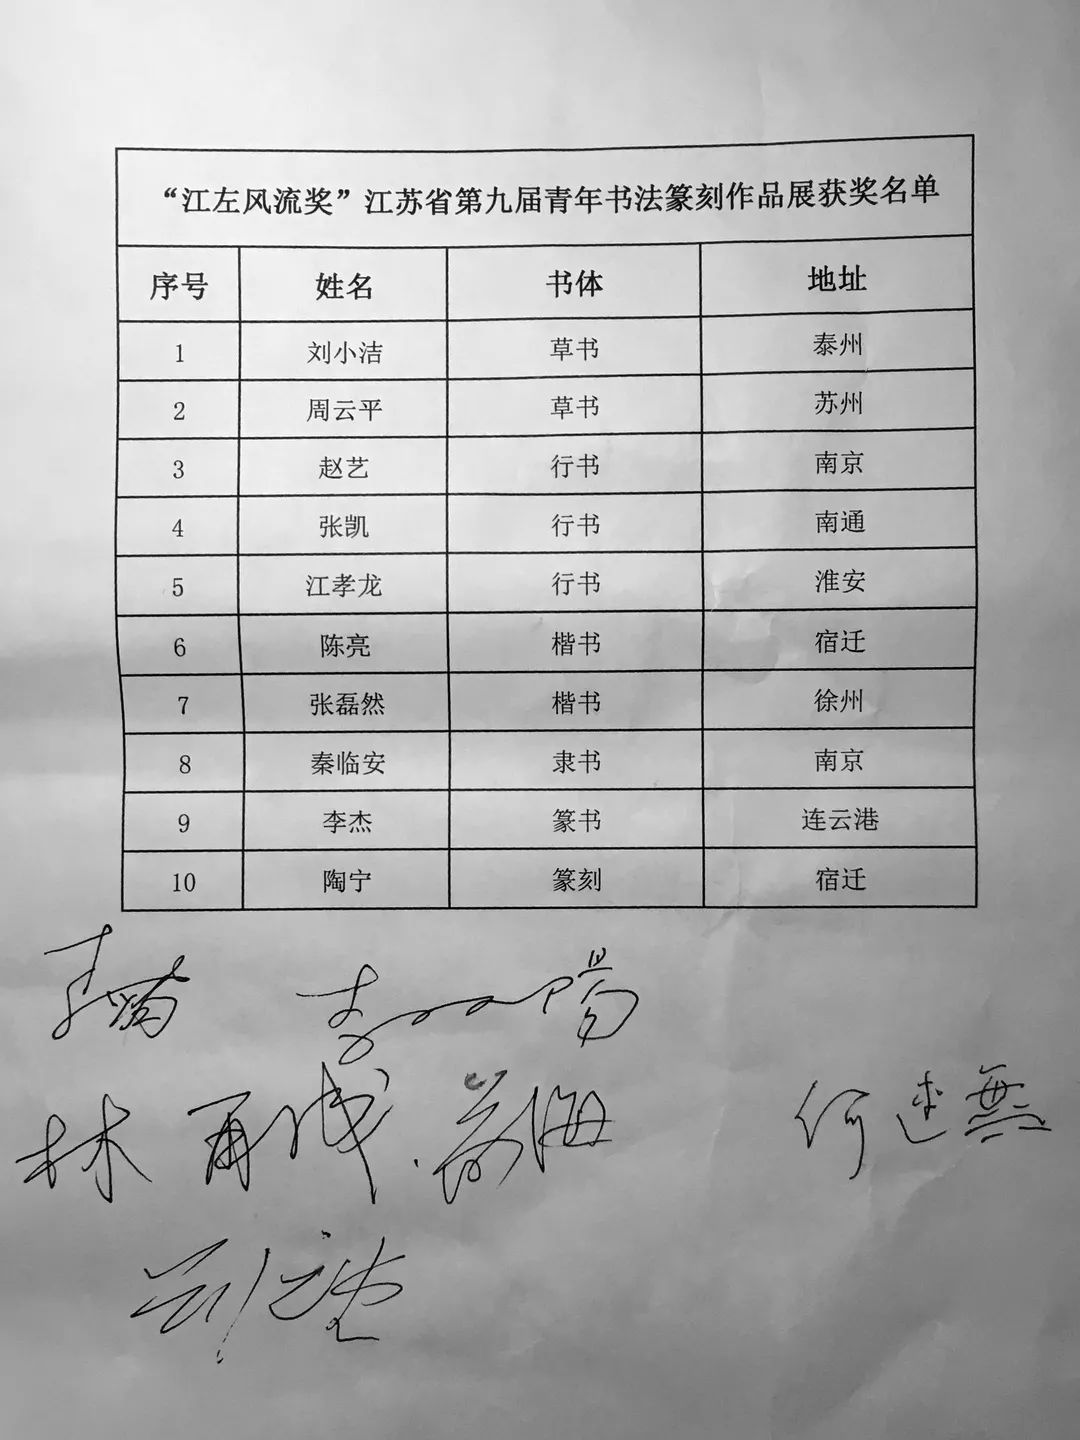 “江左风流奖”江苏省第九届青年书法篆刻作品展获奖名单
序号 姓名 书体 地址
1 刘小洁 草书 泰州
2 周云平 草书 苏州
3 赵艺 行书 南京
4 张凯 行书 南通
5 江孝龙 行书 淮安
6 陈亮 楷书 宿迁
7 张磊然 楷书 徐州
8 秦临安 隶书 南京
9 李杰 篆书 连云港
10 陶宁 篆刻 宿迁
李啸
林再成 何连海